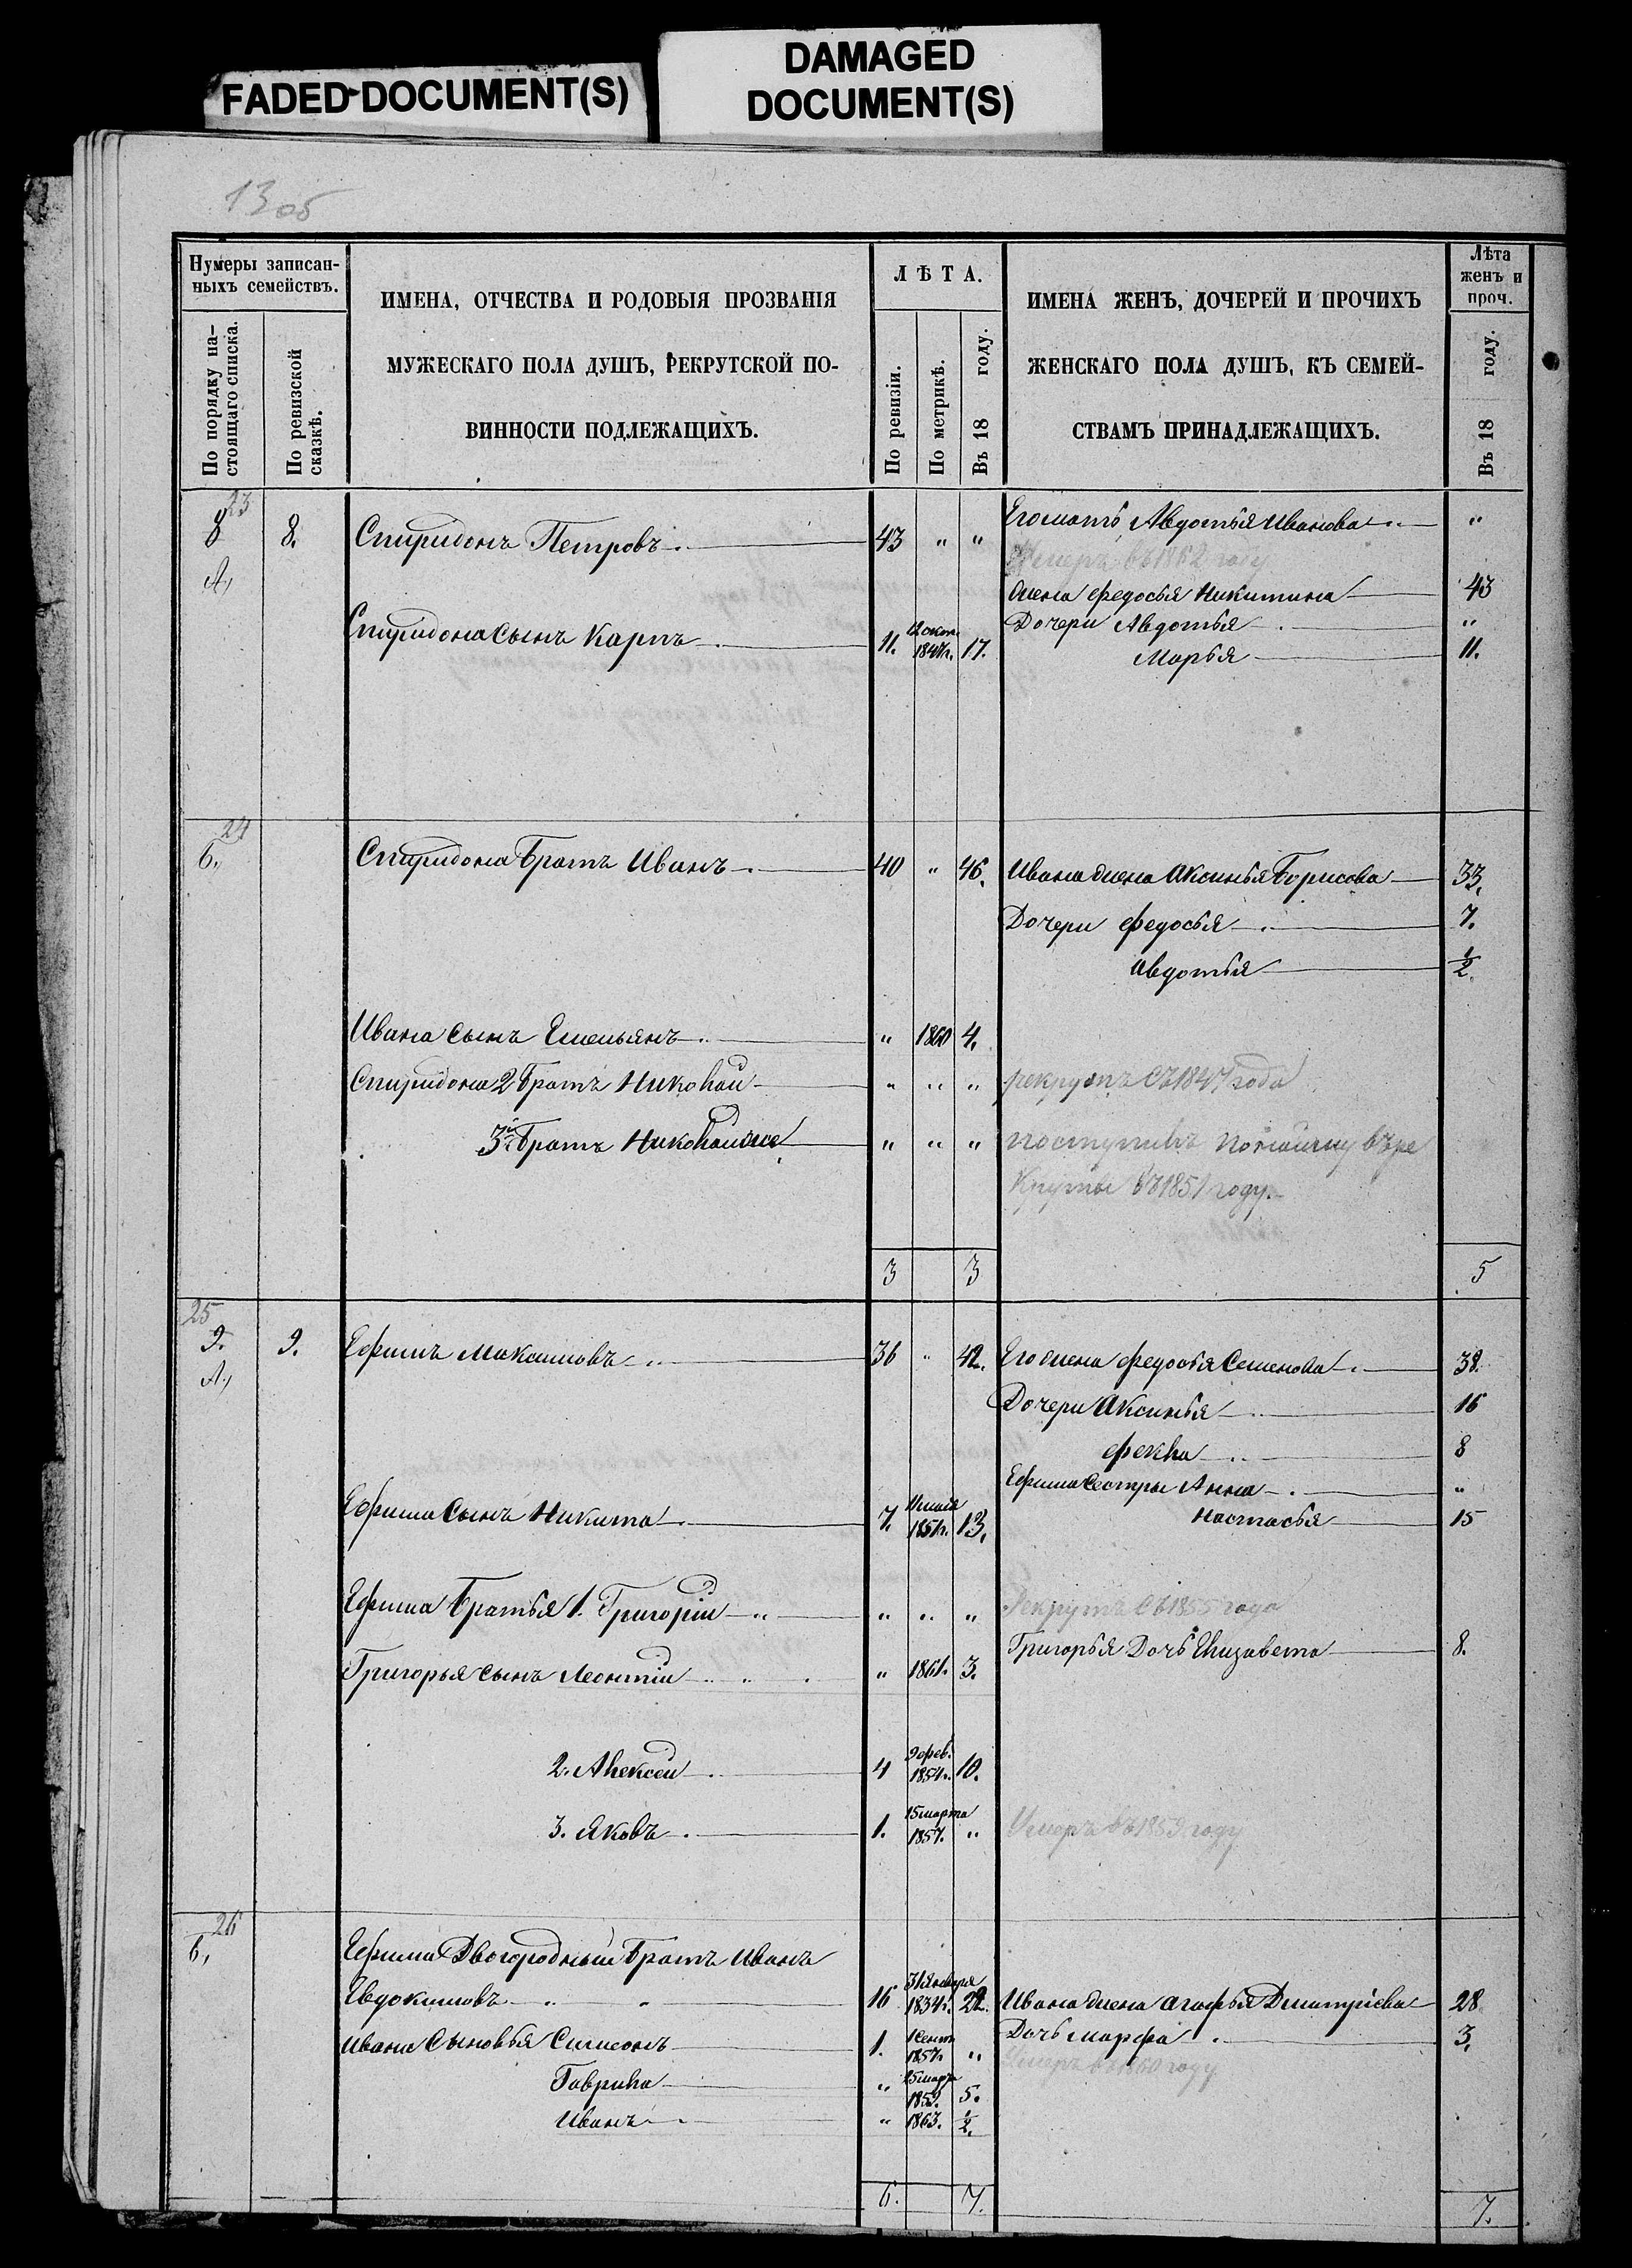 FADED DOCUMENT(S)
DAMAGED
DOCUMENT(S)
13 об
Нумеры записан-
ныхъ семействъ.
По порядку на-
стоящаго списка.
По ревизской
сказкѣ.
ИМЕНА, ОТЧЕСТВА И РОДОВЫЯ ПРОЗВАНІЯ
МУЖЕСКАГО ПОЛА ДУШЪ, РЕКРУТСКОЙ ПО-
ВИННОСТИ ПОДЛЕЖАЩИХЪ.
ЛѢТА.
По ревизіи.
По метрикѣ.
Въ 18 году.
ИМЕНА ЖЕНЪ, ДОЧЕРЕЙ И ПРОЧИХЪ
ЖЕНСКАГО ПОЛА ДУШЪ, КЪ СЕМЕЙ-
СТВАМЪ ПРИНАДЛЕЖАЩИХЪ.
Лѣта
женъ и
проч.
Въ 18 году.
23
8 8. Спиридонъ Петровъ 43 " " Его мать Авдотья Иванова "
А, Умеръ въ 1862 году
жена Федосья Никитина 43
Дочери Авдотья "
Спиридона Сынъ Карпъ 11. 1847г. 17. Марья 11.
24
Б, Спиридона Братъ Иванъ 40 " 46. Ивана жена Аксинья Борисова 33.
Дочери Федосья 7.
Авдотья 1/2.
Ивана Сынъ Емельянъ " 1860 4.
Спиридона 2 Братъ Николай " " " рекрутъ съ 1847 года
3й Братъ Николай же " " " поступилъ по найму въ ре
круты въ 1851 году.
3 3 5
25
9. 9. Ефимъ Максимовъ 36 " 42. Его жена Федосья Семенова 38.
А, Дочери Аксинья 16
Фекла 8
Ефима Сестры Анна "
Ефима Сынъ Никита 7. 1851г. 13. Настасья 15
Ефима Братья 1. Григорій " " " Рекрутъ съ 1855 года
Григорья Дочь Елизавета 8.
Григорья сынъ Леонтій " 1861. 3.
2. Алексей 4 9 фев. 1854г. 10.
3. Яковъ 1. 15 марта 1857. " Умеръ въ 1859 году
26
Б, Ефима Двоюродный Братъ Иванъ
Евдокимовъ 16 31 Января 1834г. 22. Ивана жена Агафья Дмитріева 28
Ивана Сыновья Симеонъ 1. 1 Сент. 1857г. " Дочь Марфа 3.
Умеръ въ 1860 году
Гаврила " 25 мар. 1859. 5.
Иванъ " 1863. 1/2.
6. 7. 7.